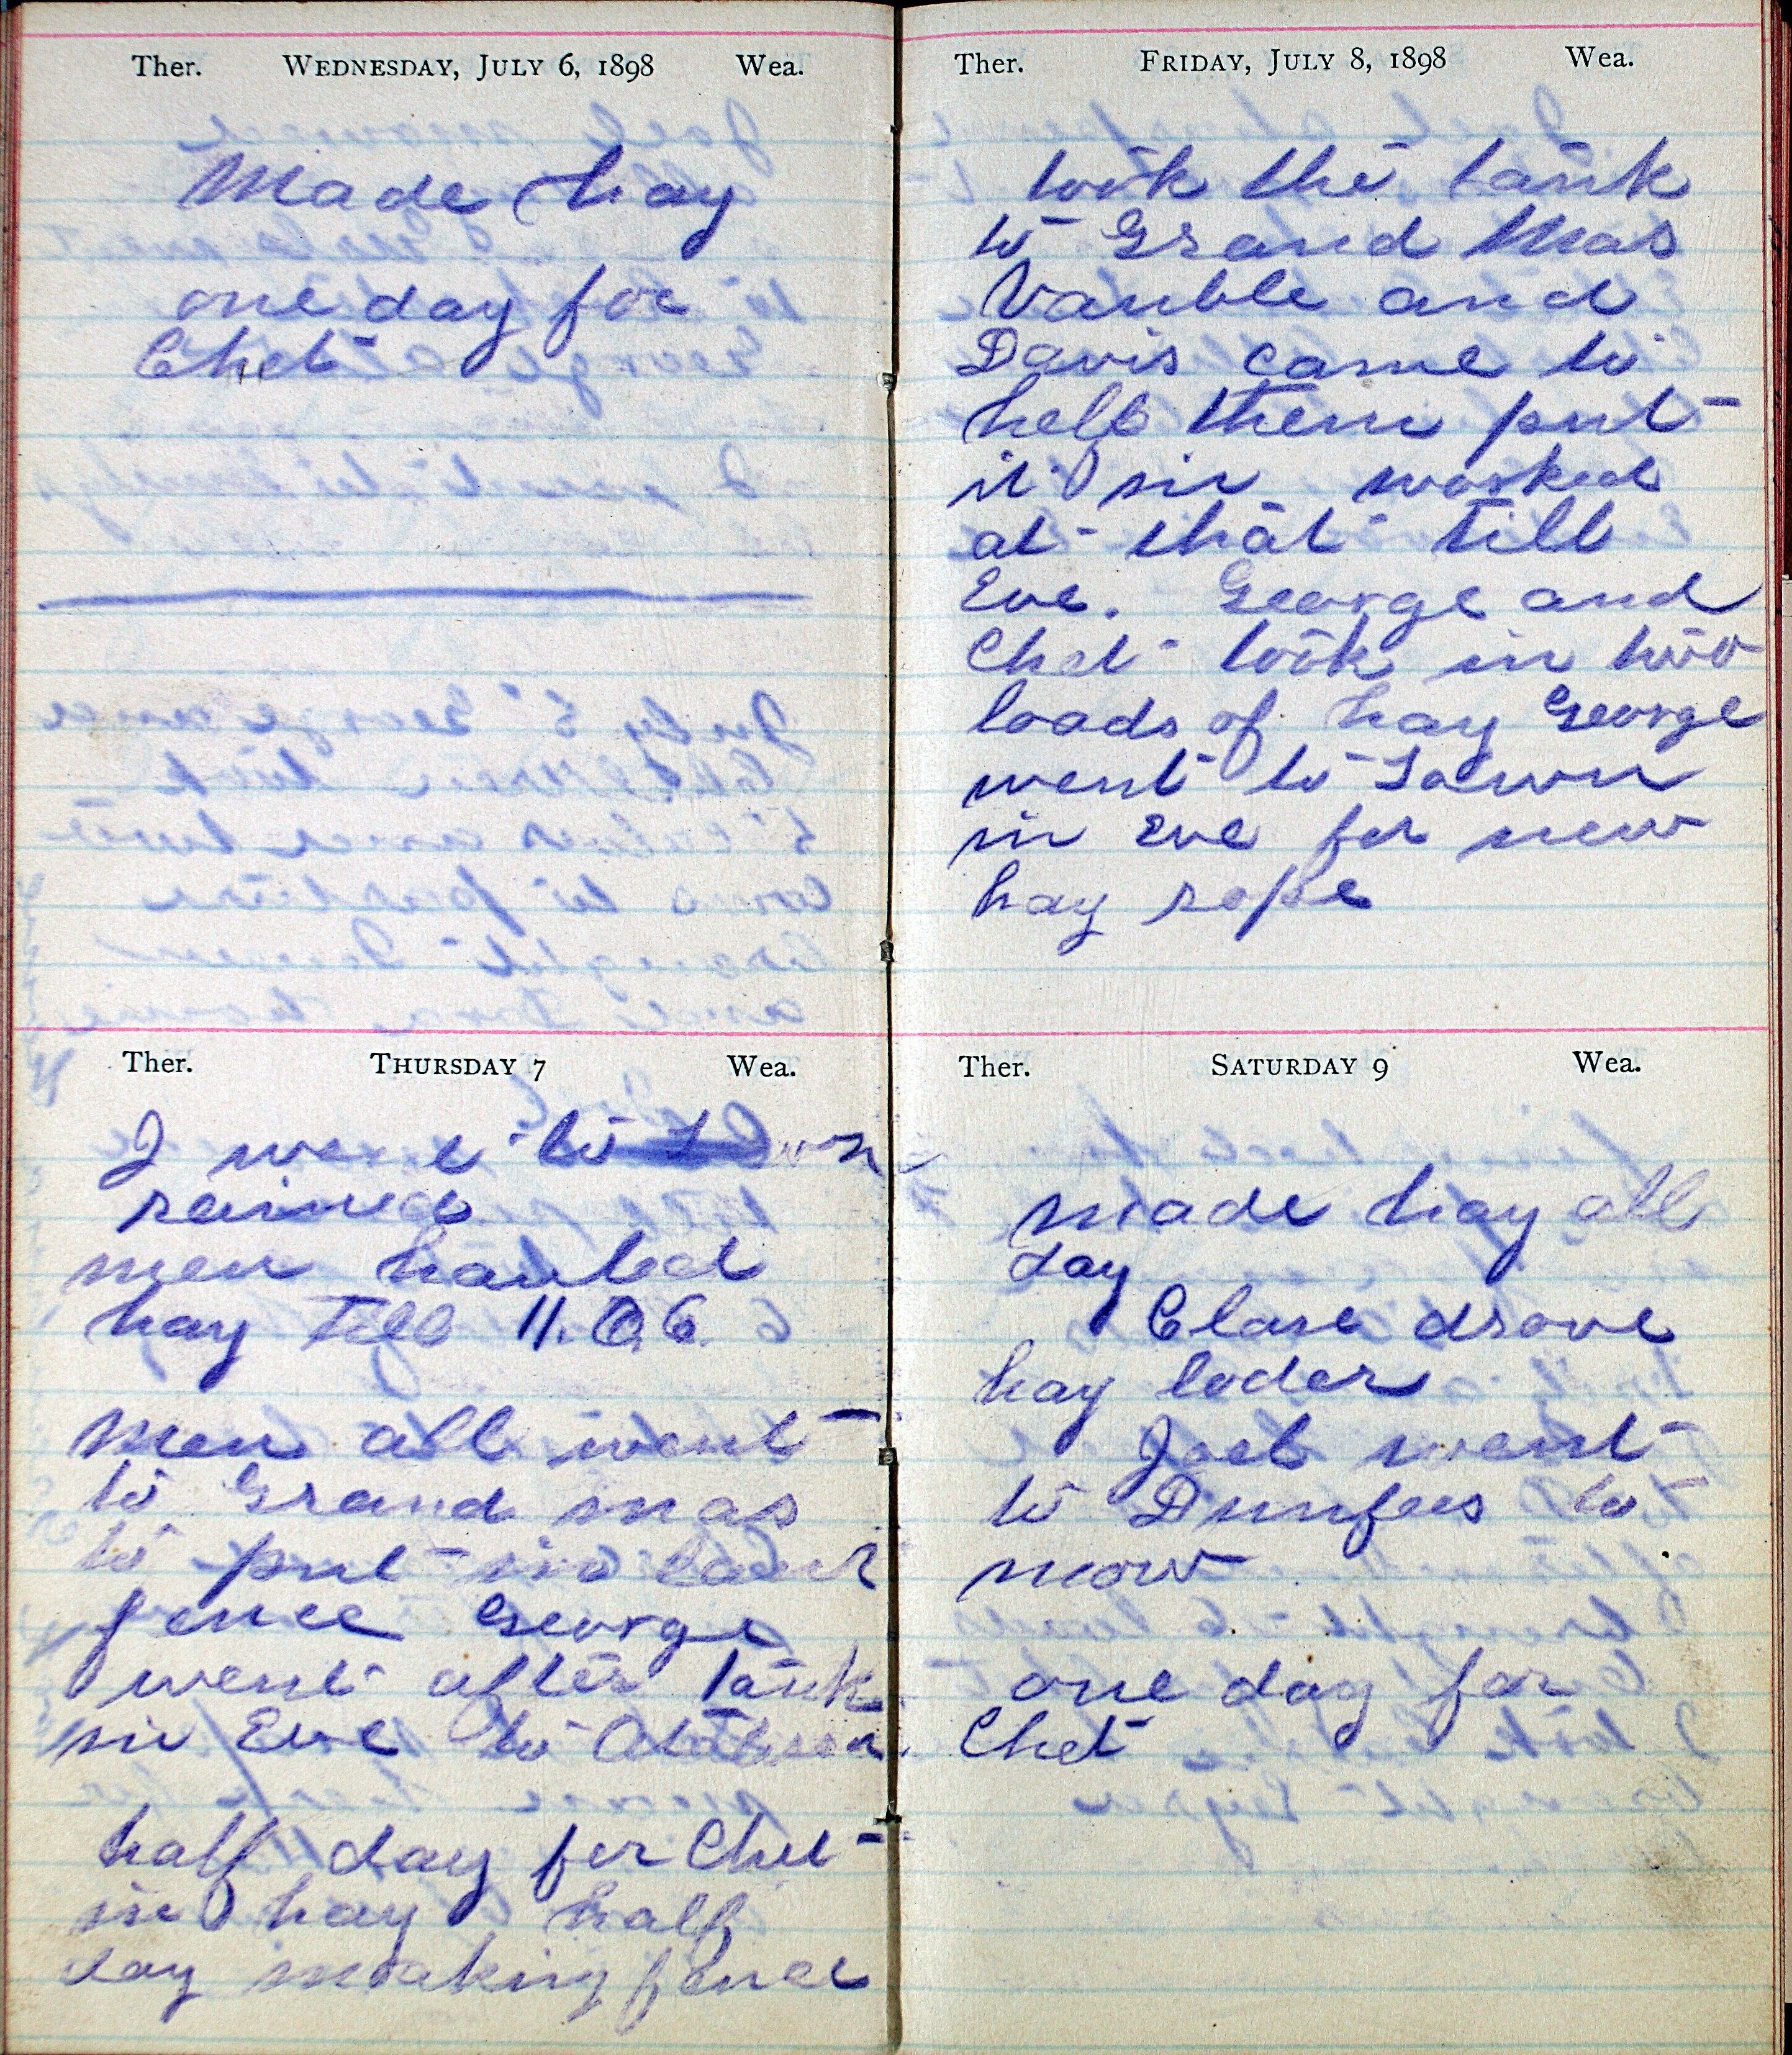 Ther. WEDNESDAY, JULY 6, 1898 Wea.
Made hay
one day for
Chet
Ther. THURSDAY 7 Wea.
I went to town
rained
men hauled
hay till 11. O.C.
Men all went
to Grand mas
to put in
fence George
went after tank
in Eve to
half day for Chet
in hay half
day making fence
Ther. FRIDAY, JULY 8, 1898 Wea.
took the tank
to Grand Mas
Vauble and
Davis came to
help them put
it in worked
at that till
Eve. George and
Chet took in two
loads of hay George
went to Town
in Eve for new
hay rope
Ther. SATURDAY 9 Wea.
made hay all
day
Clare drove
hay loder
Joel went
to Dunfees to
mow
one day for
Chet